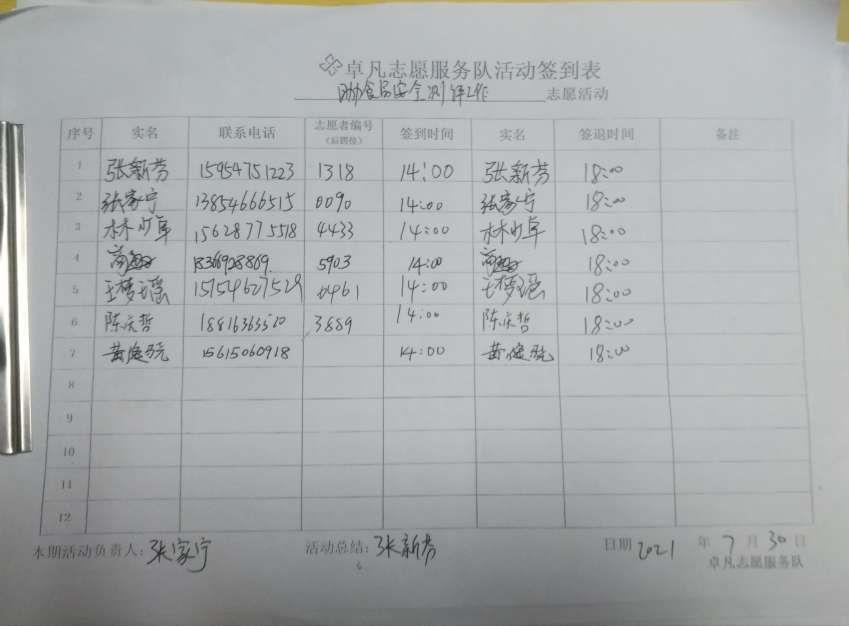 卓凡志愿服务队活动签到表
食品安全测评工作 志愿活动
序号 实名 联系电话 志愿者编号(后四位) 签到时间 实名 签退时间 备注
1 张新芳 15954751223 1318 14:00 张新芳 18:00
2 张家宁 13854666515 0090 14:00 张家宁 18:00
3 林少卓 15628775518 4433 14:00 林少卓 18:00
4 18366928869 5903 14:00 18:00
5 王梦瑶 15754627529 0461 14:00 王梦瑶 18:00
6 陈庆哲 3889 14:00 陈庆哲 18:00
7 15615060918 14:00 18:00
8
9
10
11
12
本期活动负责人:张家宁 活动总结:张新芳 日期 2021 年 7 月 30 日
卓凡志愿服务队